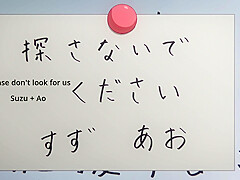 探さないで
ください
すず あお
don't look for us
Suzu + Ao